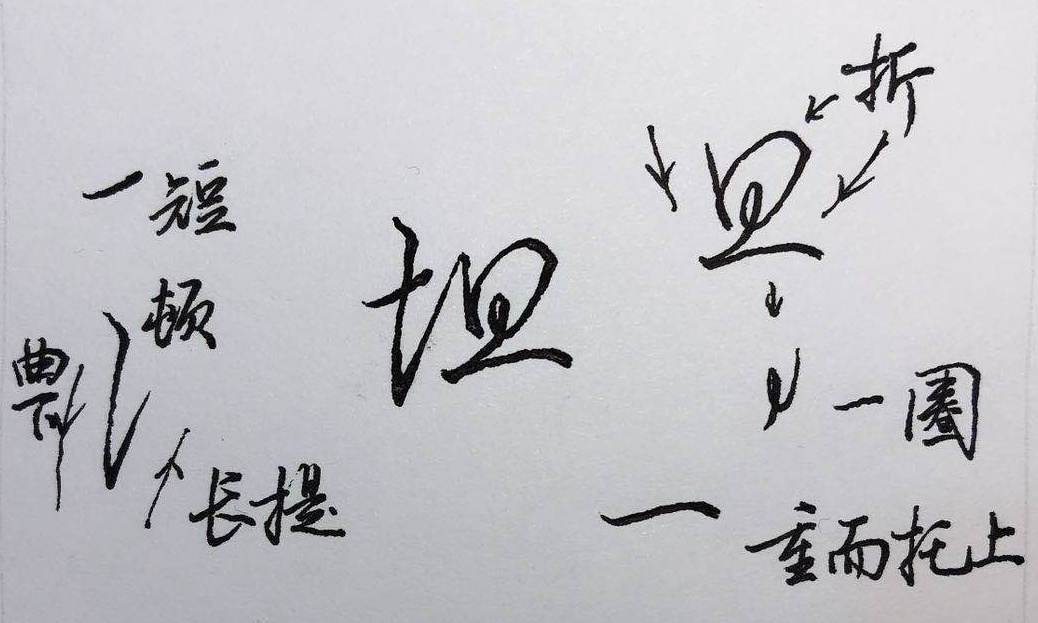 短
顿
曲下
长提
坦
旦
折
一圈
重而托上